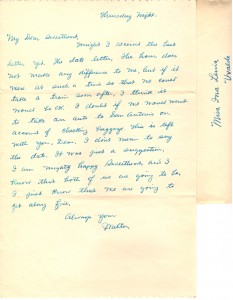 Thursday Night.
My Dear Sweetheart,
Tonight I received the best
letter yet. The date letter. The hour does
not make any difference to me, but if it
was at such a time so that we could
take a train soon after, I think it
would be OK. I doubt if we would want
to take an auto to San Antonio on
account of checking baggage. This is left
with you, Dear. I don't mean to say
the date. It was just a suggestion.
I am mighty happy Sweetheart, and I
know that both of us are going to be,
I just know that we are going to
get along fine.
Always your
Milton
Miss Ina
Uvalde